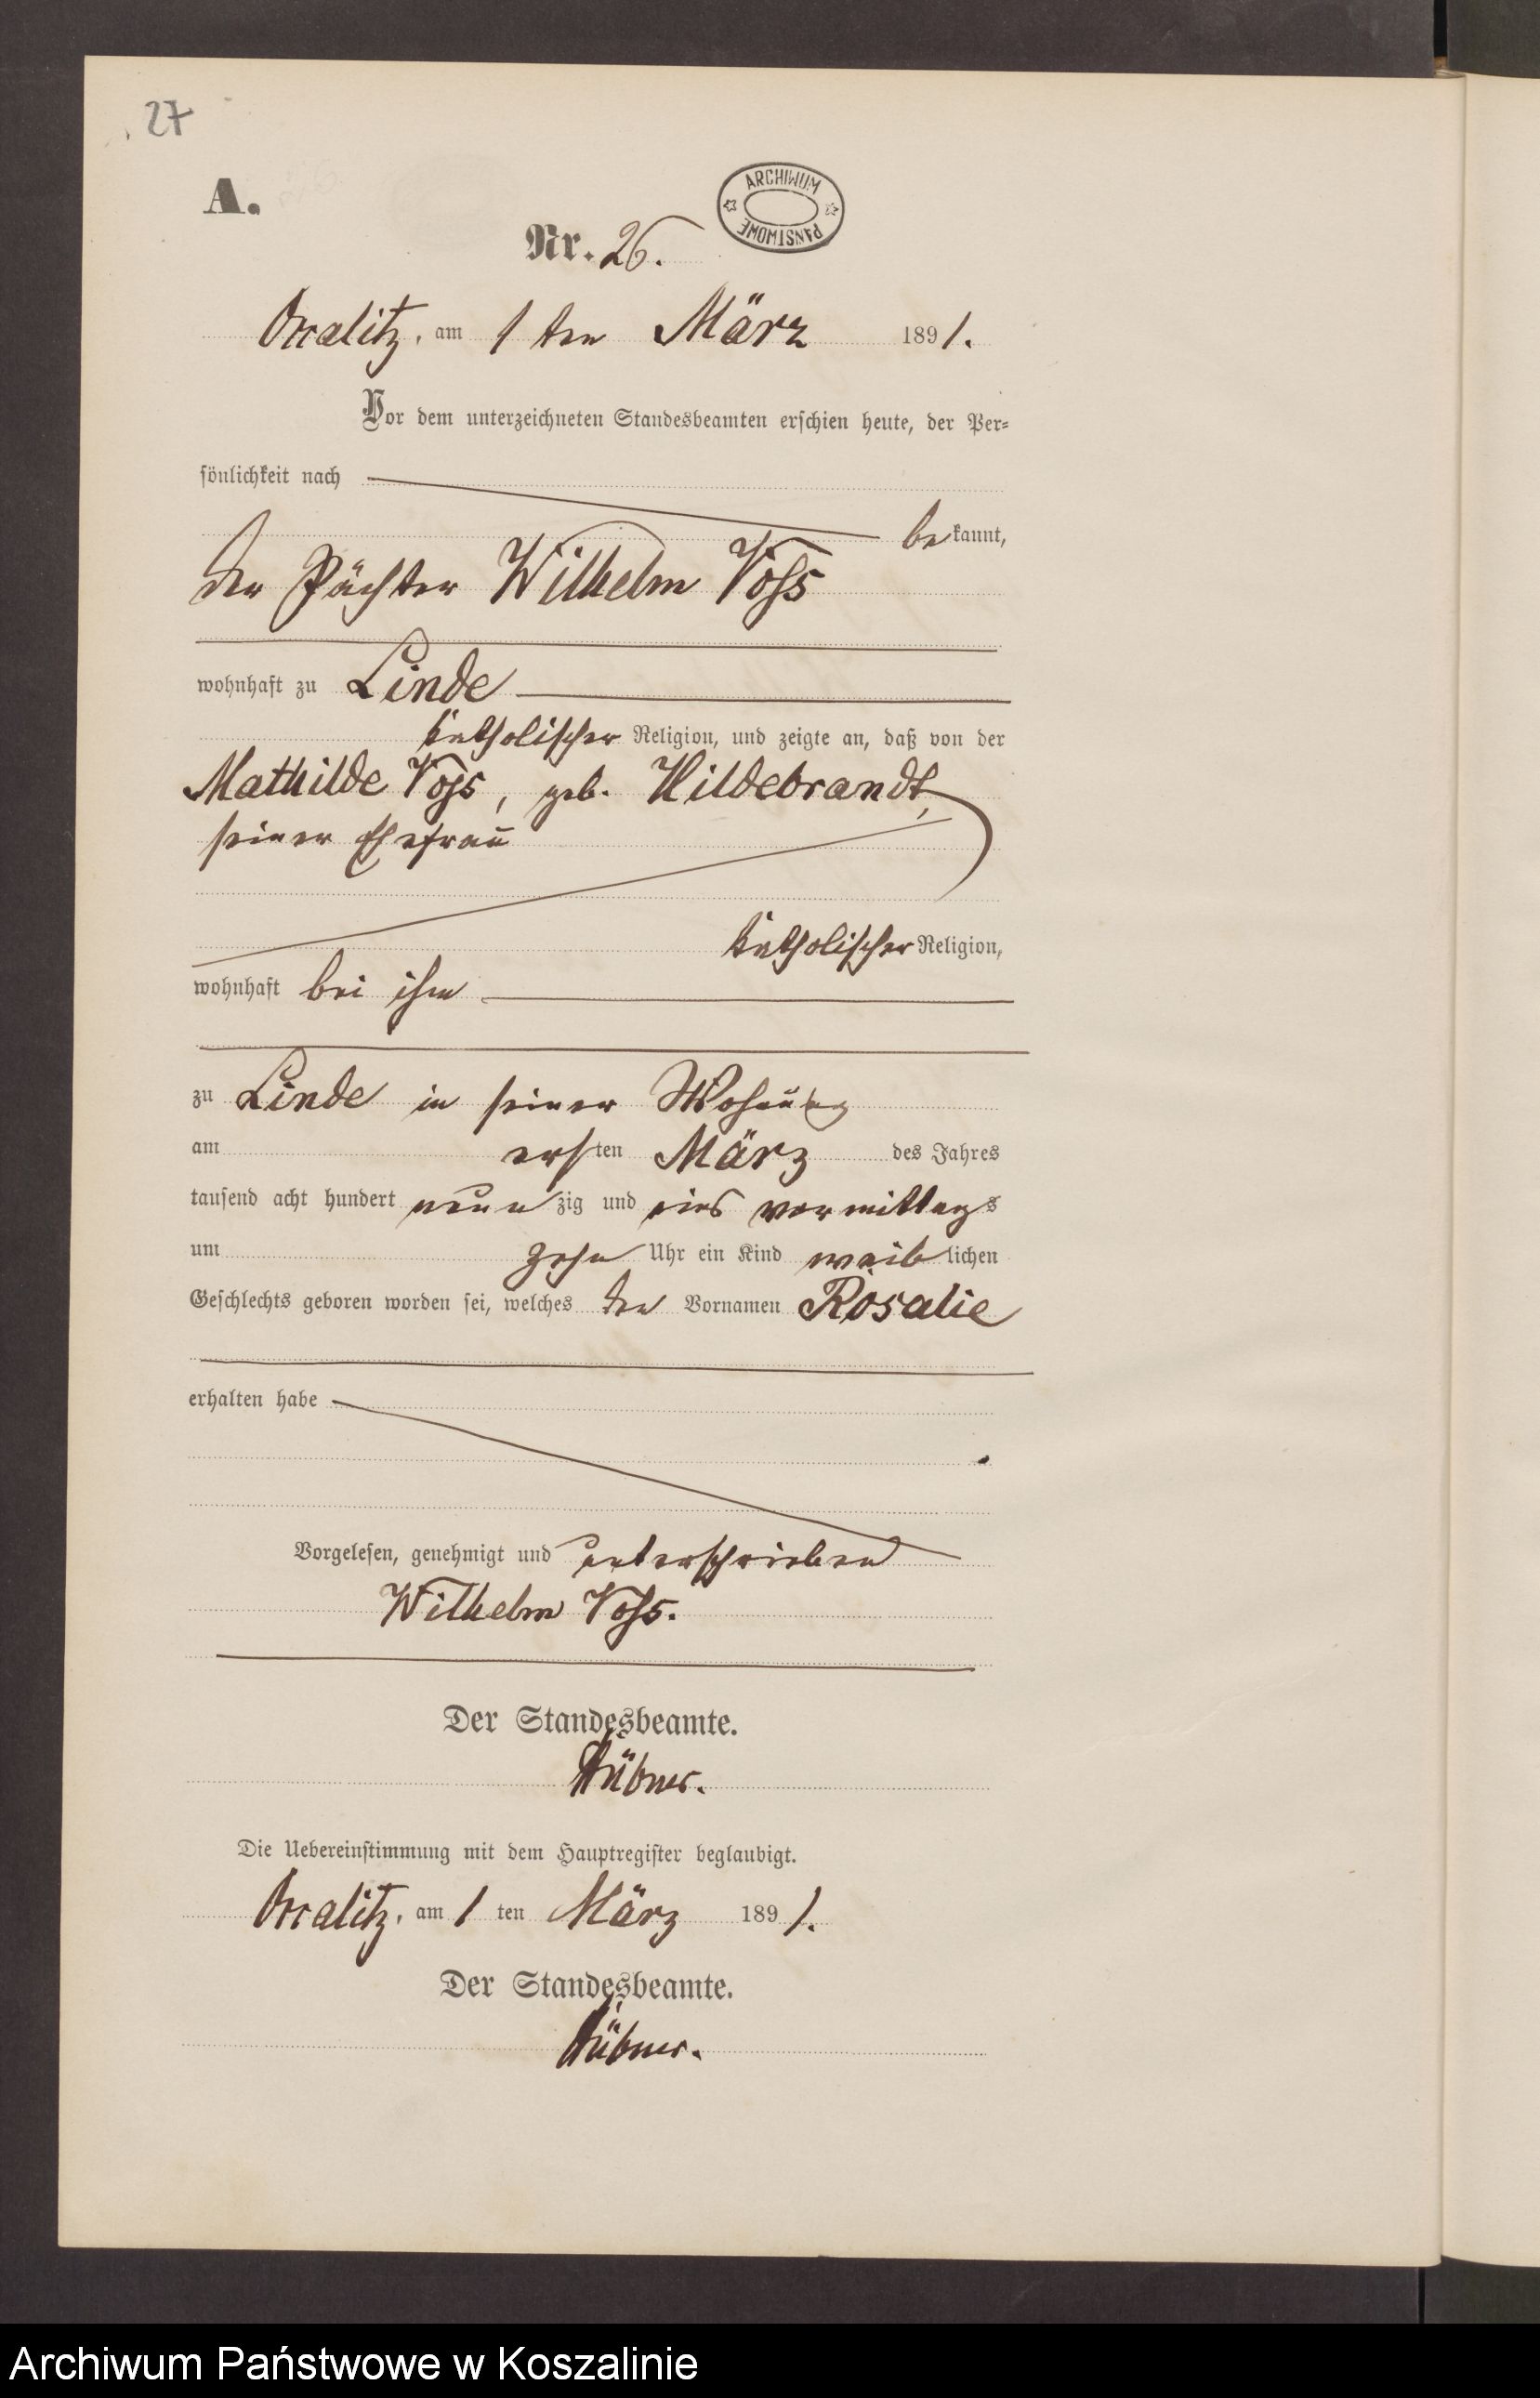 27
A.
ARCHIWUM PAŃSTWOWE
Nr. 26.
Occalitz, am 1 ten März 1891.
Vor dem unterzeichneten Standesbeamten erschien heute, der Per=
sönlichkeit nach
bekannt,
der Pächter Wilhelm Voss
wohnhaft zu Linde
katholischer Religion, und zeigte an, daß von der
Mathilde Voss, geb. Hildebrandt,
seiner Ehefrau
katholischer Religion,
wohnhaft bei ihm
zu Linde in seiner Wohnung
am ersten März des Jahres
tausend acht hundert neunzig und eins vormittags
um zehn Uhr ein Kind weiblichen
Geschlechts geboren worden sei, welches den Vornamen Rosalie
erhalten habe
Vorgelesen, genehmigt und unterschrieben
Wilhelm Voss.
Der Standesbeamte.
Hübner.
Die Uebereinstimmung mit dem Hauptregister beglaubigt.
Occalitz, am 1 ten März 1891.
Der Standesbeamte.
Hübner.
Archiwum Państwowe w Koszalinie